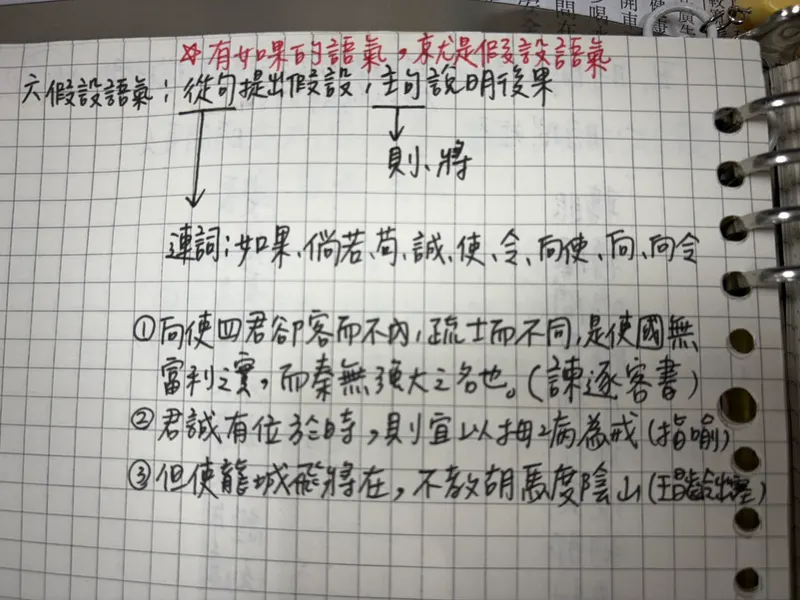 ☆有如果的語氣，就是假設語氣
六假設語氣：從句提出假設，主句說明後果
則、將
連詞：如果、倘若、苟、誠、使、令、向使、向、向令
①向使四君卻客而不內，疏士而不同，是使國無
富利之實，而秦無強大之名也。(諫逐客書)
②君誠有位於時，則宜以拇病為戒(指喻)
③但使龍城飛將在，不教胡馬度陰山(王昌齡出塞)